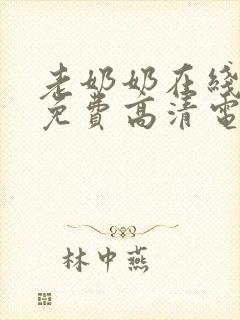 老奶奶在线
免費高清電
林中燕